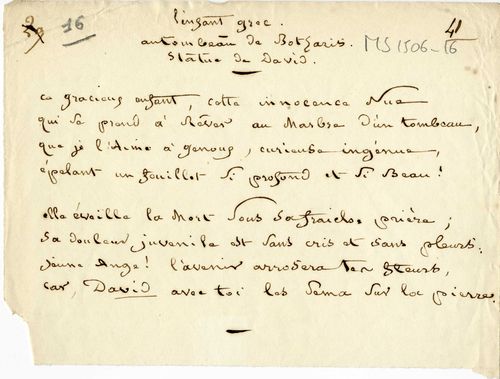 16
41
l'enfant grec.
au tombeau de Botzaris.
Statue de David.
MS 1506-16
ce gracieux enfant, cette innocence Nue
qui se prend à Rêver au Marbre d'un tombeau,
que je l'Aime à genoux, curieuse ingénue,
épelant un feuillet Si profond et Si Beau!
elle éveille la Mort Sous Sa fraîche prière;
Sa douleur juvenile est Sans cris et Sans pleurs.
jeune Ange! l'avenir arrosera tes fleurs,
car, David avec toi les Sema Sur la pierre.